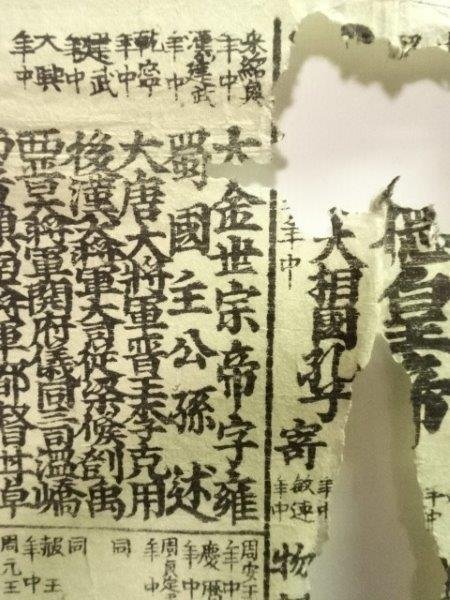 皇帝
大相國孔子
年中
寄
敏達年中
物
年中
漢建武年中
乾寧年中
建武年中
大興年中
大金世宗帝字雍
蜀國主公孫述
大唐大將軍晋王李克用
後漢大將軍大司徒梁侯
將軍開府儀同三司溫嶠
將軍都督甘卓
周安王年中
慶曆年中
周貞定王年中
同
同
赧王年中
周元王